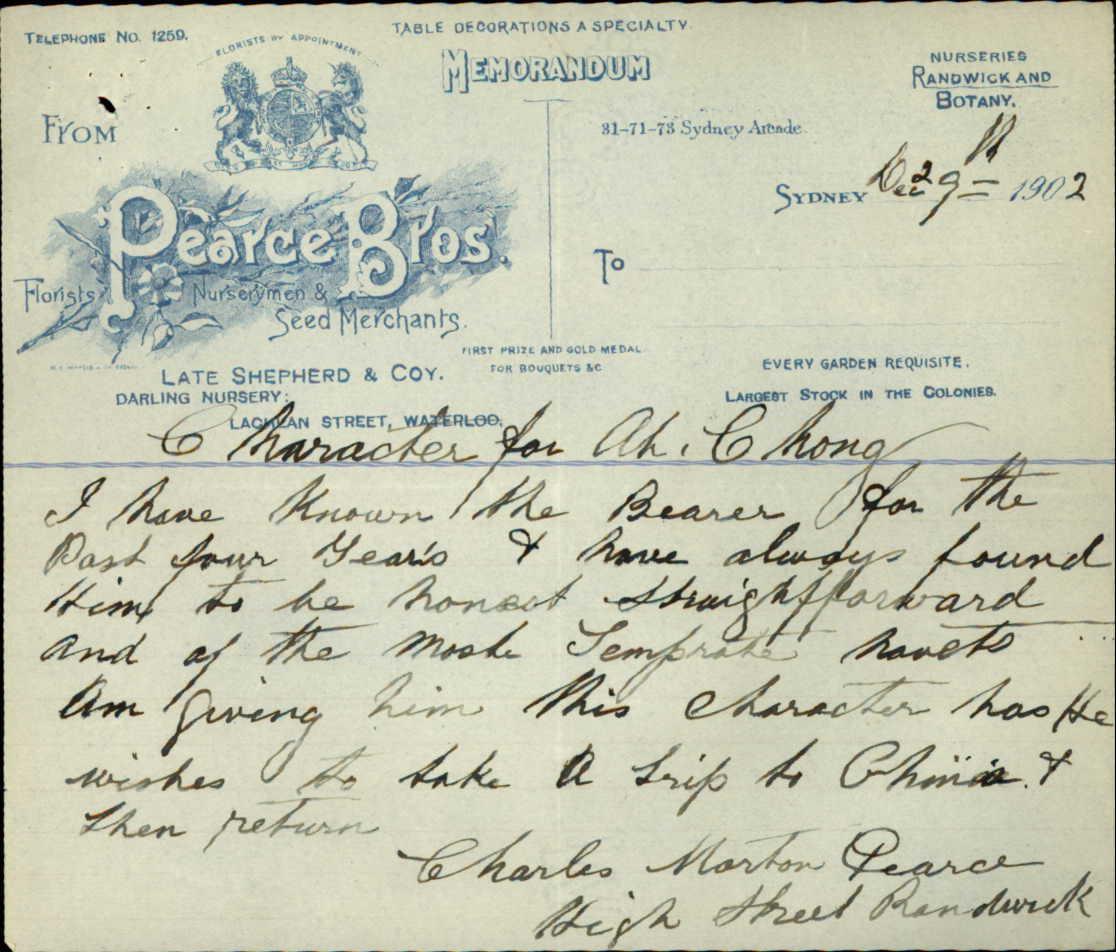 TELEPHONE NO. 1259.
TABLE DECORATIONS A SPECIALTY.
FLORISTS BY APPOINTMENT
MEMORANDUM
NURSERIES
RANDWICK AND
BOTANY.
FROM
31-71-73 Sydney Arcade.
SYDNEY Dec 29 1902
Pearce Bros.
TO
Florists
Nurserymen &
Seed Merchants.
FIRST PRIZE AND GOLD MEDAL
FOR BOUQUETS &C
EVERY GARDEN REQUISITE.
LATE SHEPHERD & COY.
DARLING NURSERY:
LARGEST STOCK IN THE COLONIES.
LACHLAN STREET, WATERLOO.
Character for Ah. Chong
I have Known the Bearer for the
Past four Years & have always found
Him to be honest straightforward
and of the moste Temprate havets
Am giving him this Character has He
wishes to take A trip to China &
then return
Charles Morton Pearce
High Street Randwick